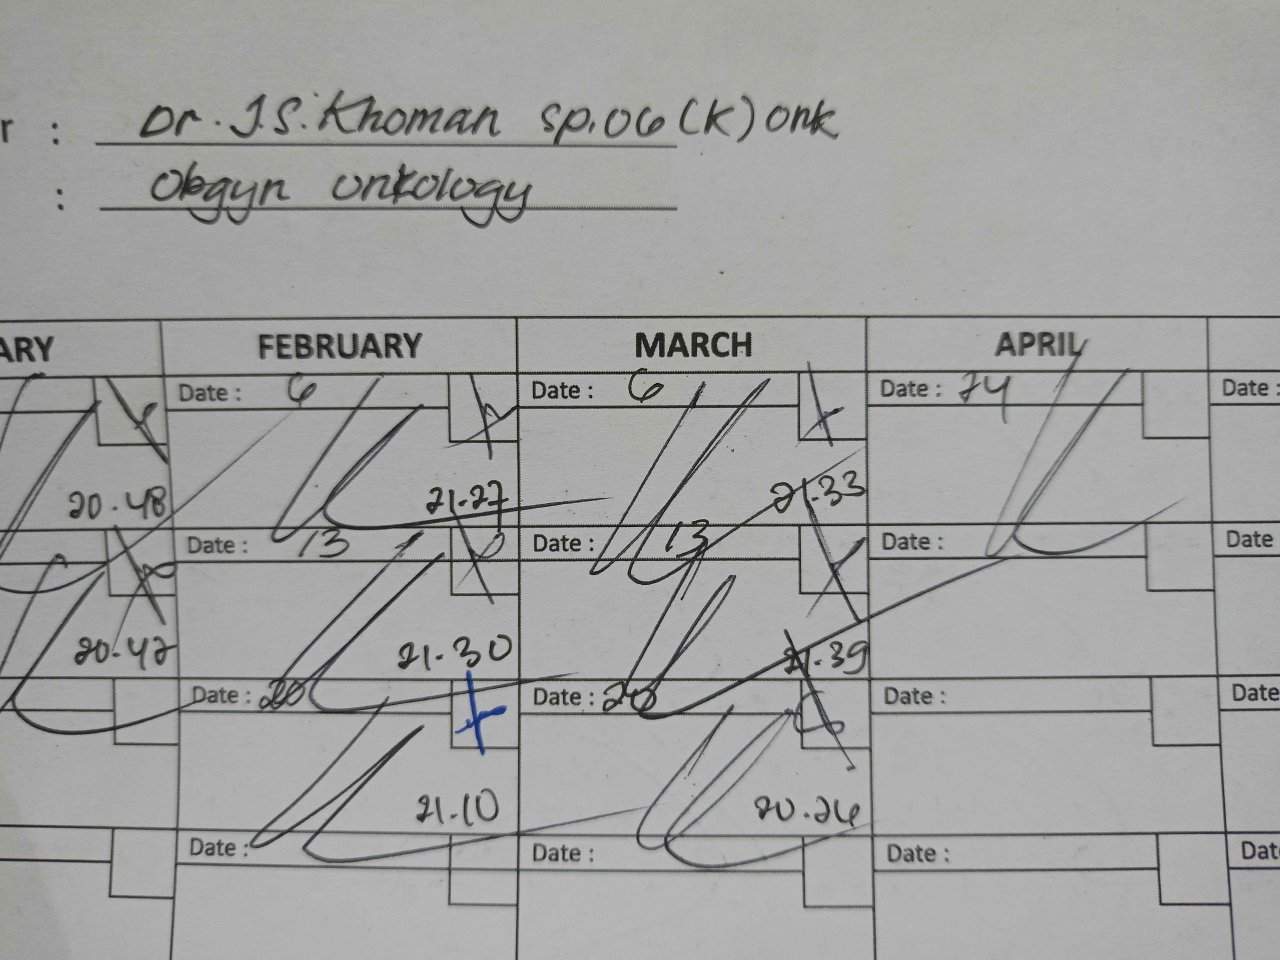 r : Dr. J.S. Khoman sp.OG (K) onk
: Obgyn onkology
ARY FEBRUARY MARCH APRIL
Date : 6 Date : 6 Date : 24 Date :
20.48 21.27 21.33
Date : 13 Date : 13 Date : Date
20.42 21.30 21.39
Date : 20 Date : 20 Date : Date
21.10 20.26
Date : Date : Date : Dat